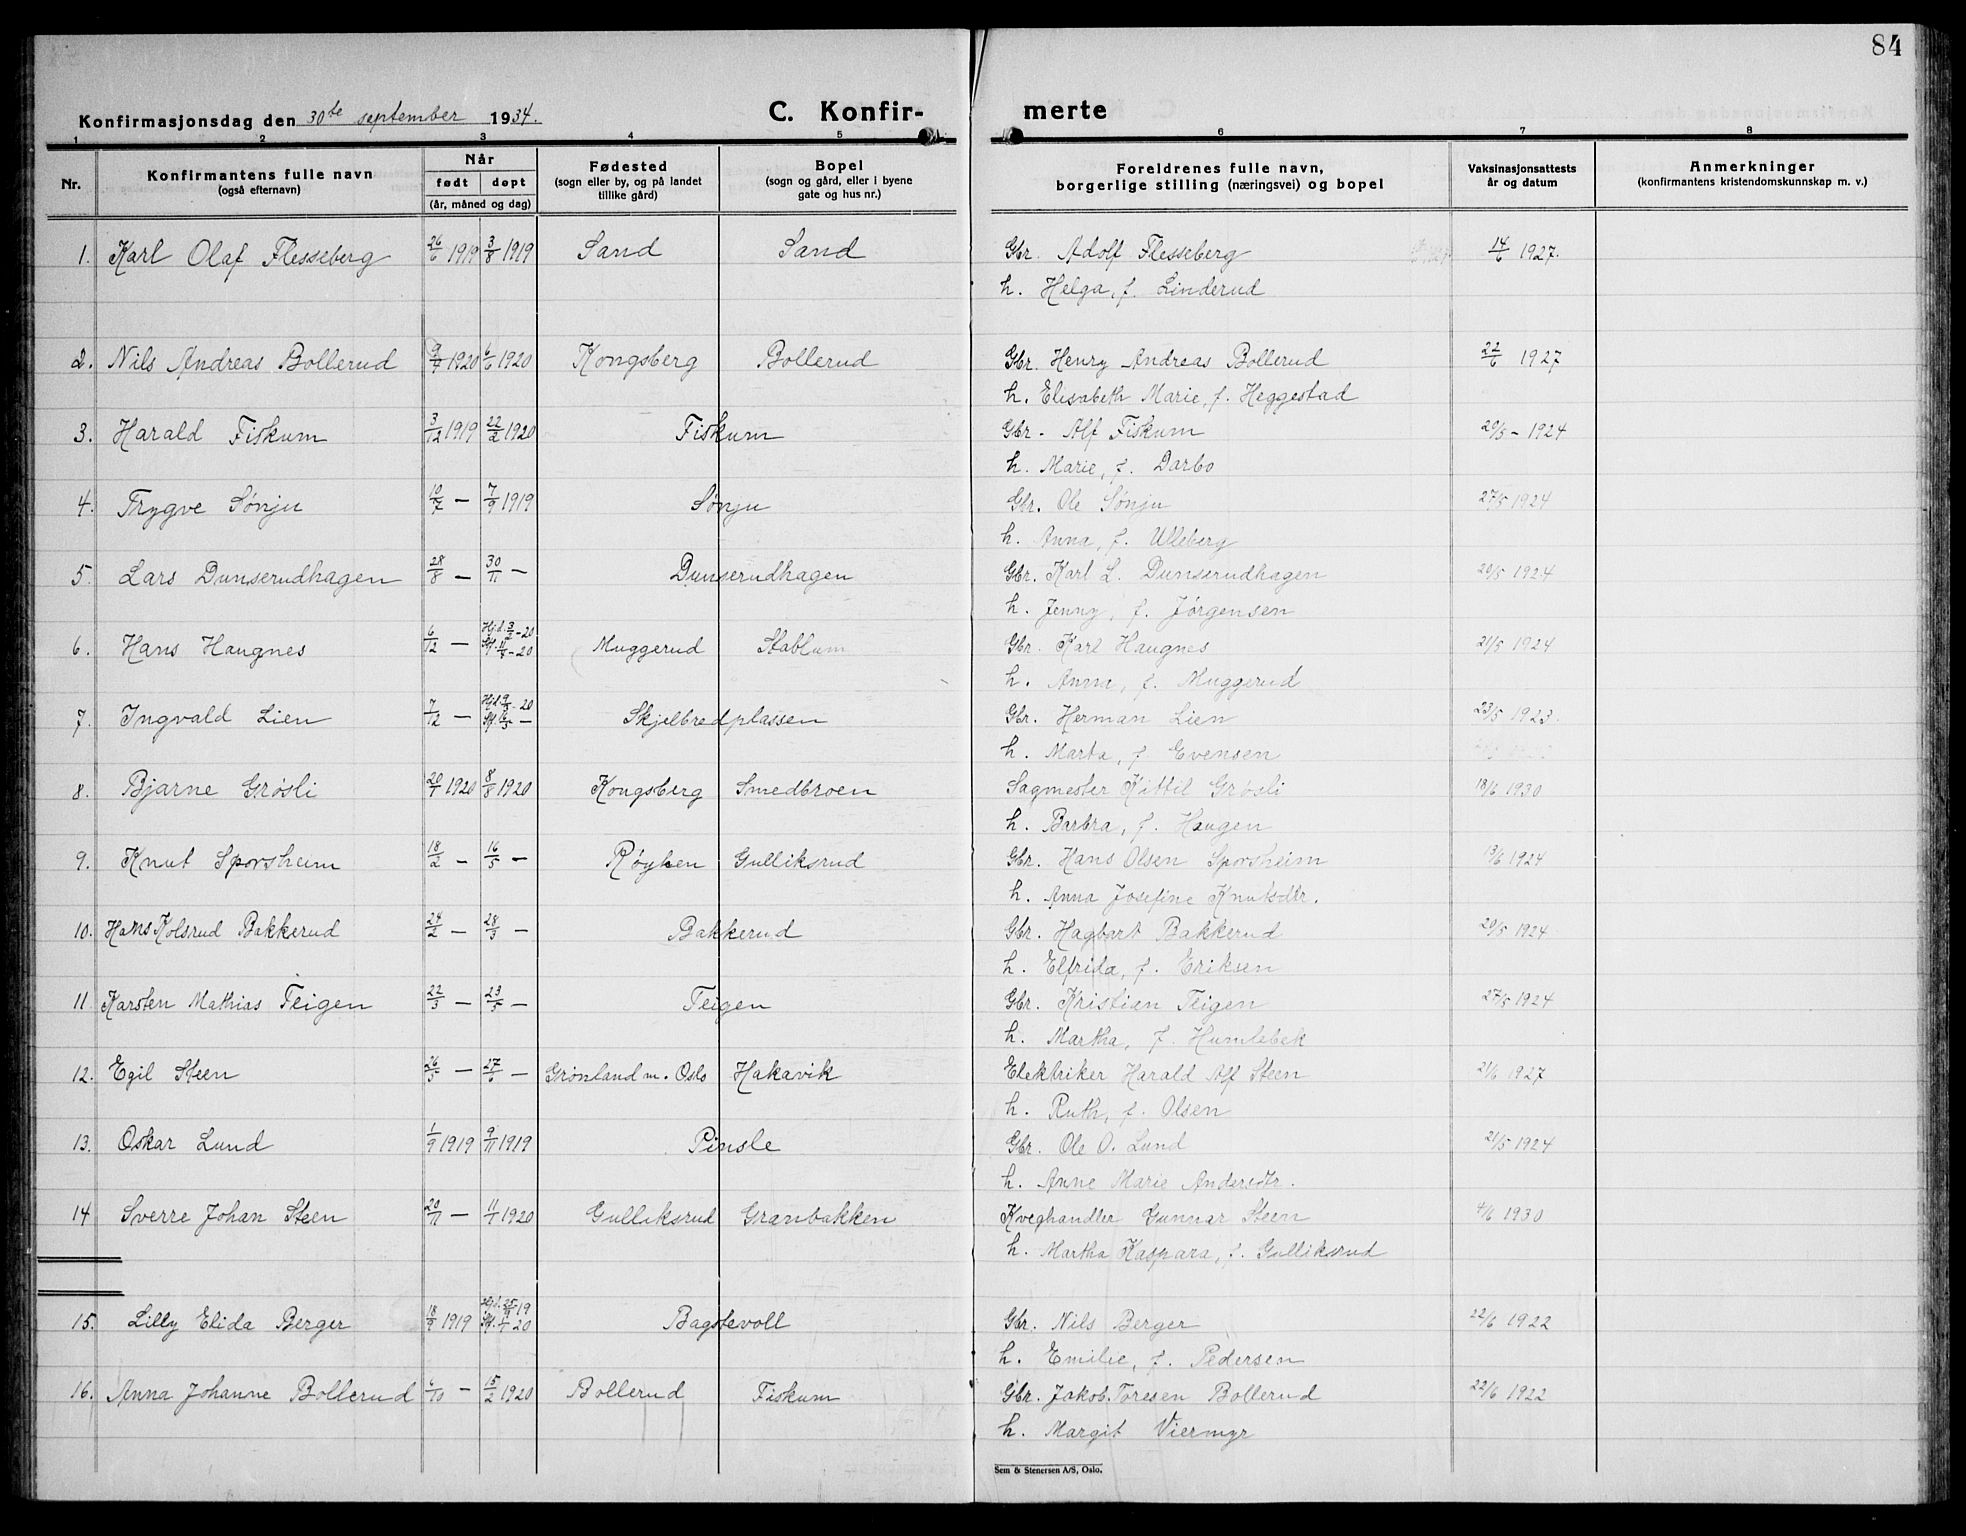 84
Konfirmasjonsdag den 30te september 1934.
C. Konfir- merte
1 2 3 4 5 6 7 8
Nr.
Konfirmantens fulle navn
(også efternavn)
Når
født døpt
(år, måned og dag)
Fødested
(sogn eller by, og på landet
tillike gård)
Bopel
(sogn og gård, eller i byene
gate og hus nr.)
Foreldrenes fulle navn,
borgerlige stilling (næringsvei) og bopel
Vaksinasjonsattests
år og datum
Anmerkninger
(konfirmantens kristendomskunnskap m. v.)
1. Karl Olaf Flesseberg 26/6 1919 3/8 1919 Sand Sand Gbr. Adolf Flesseberg 14/6 1927.
h. Helga, f. Linderud
2. Nils Andreas Bollerud 1920 6/6 1920 Kongsberg Bollerud Gbr. Henry Andreas Bollerud 22/6 1927
h. Elisabeth Marie, f. Heggestad
3. Harald Fiskum 3/12 1919 22/2 1920 Fiskum Gbr. Alf Fiskum 20/5 - 1924
h. Marie, f. Darbo
4. Trygve Sønju 10/7 — 7/9 1919 Sønju Gbr. Ole Sønju 27/5 1924
h. Anna, f. Ulleberg
5. Lars Dunserudhagen 28/8 — 30/11 — Dunserudhagen Gbr. Karl L. Dunserudhagen 20/5 1924
h. Jenny, f. Jørgensen
6. Hans Haugnes 6/12 — Hjd. 3/2-20 Muggerud Stablum Gbr. Karl Haugnes 21/5 1924
h. Anna, f. Muggerud
7. Ingvald Lien 7/12 — Skjelbredplassen Gbr. Herman Lien 23/5 1923.
h. Marta, f. Evensen
8. Bjarne Grøsli 20/1 1920 8/8 1920 Kongsberg Smedbroen Sagmester Kittil Grøsli 18/6 1930
h. Barbra, f. Haugen
9. Knut Sporsheim 18/2 — 16/5 — Røyken Gulliksrud Gbr. Hans Olsen Sporsheim 13/6 1924
h. Anna Josefine Knutsdtr.
10. Hans Kolsrud Bakkerud 24/2 — 28/3 — Bakkerud Gbr. Hagbart Bakkerud 20/5 1924
h. Elfrida, f. Eriksen
11. Karsten Mathias Teigen 22/3 — 23/5 — Teigen Gbr. Kristian Teigen 27/5 1924
h. Martha, f. Humlebek
12. Egil Steen 26/5 — 27/6 — Grønland m. Oslo Hakavik Elektriker Harald Alf Steen 21/6 1927
h. Ruth, f. Olsen
13. Oskar Lund 1/9 1919 9/11 1919 Pinsle Gbr. Ole O. Lund 21/5 1924
h. Anne Marie Andersdtr.
14 Sverre Johan Steen 20/11 — 11/1 1920 Gulliksrud Granbakken Kveghandler Gunnar Steen 4/6 1930
h. Martha Kaspara, f. Gulliksrud
15. Lilly Elida Berger 18/9 1919 Bagstevoll Gbr. Nils Berger 22/6 1922
h. Emilie, f. Pedersen
16. Anna Johanne Bollerud 6/10 — 15/2 1920 Bollerud Fiskum Gbr. Jakob Toresen Bollerud 22/6 1922
h. Margit Viermyr
Sem & Stenersen A/S, Oslo.